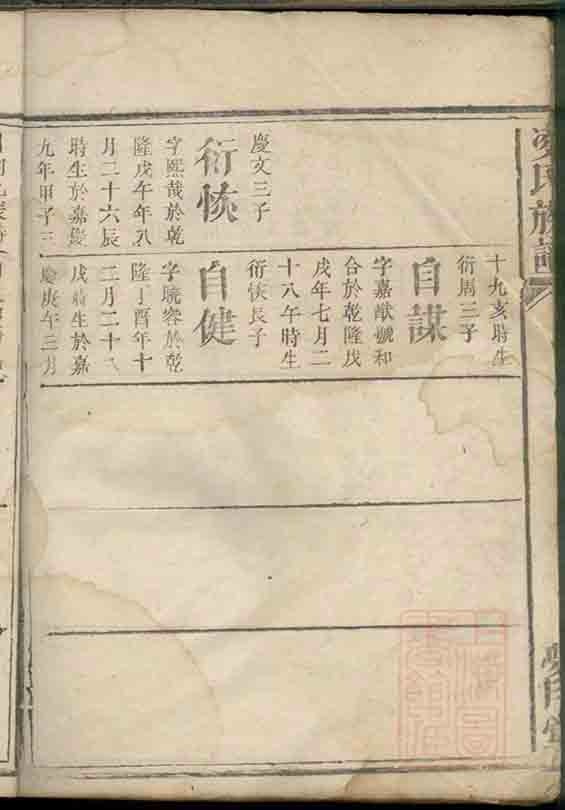 氏族譜
慶文三子
衍恢
字熙哉於乾
隆戊午年八
月二十六辰
時生於嘉慶
九年甲子三
十九亥時生
衍周三子
自謀
字嘉猷號和
合於乾隆戊
戌年七月二
十八午時生
衍恢長子
自健
字曉容於乾
隆丁酉年十
二月二十八
戌時生於嘉
慶庚午三月
上海圖
書館藏